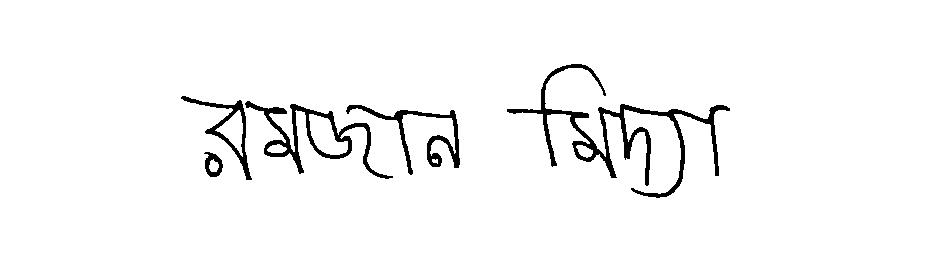 রমজান মিদ্যা